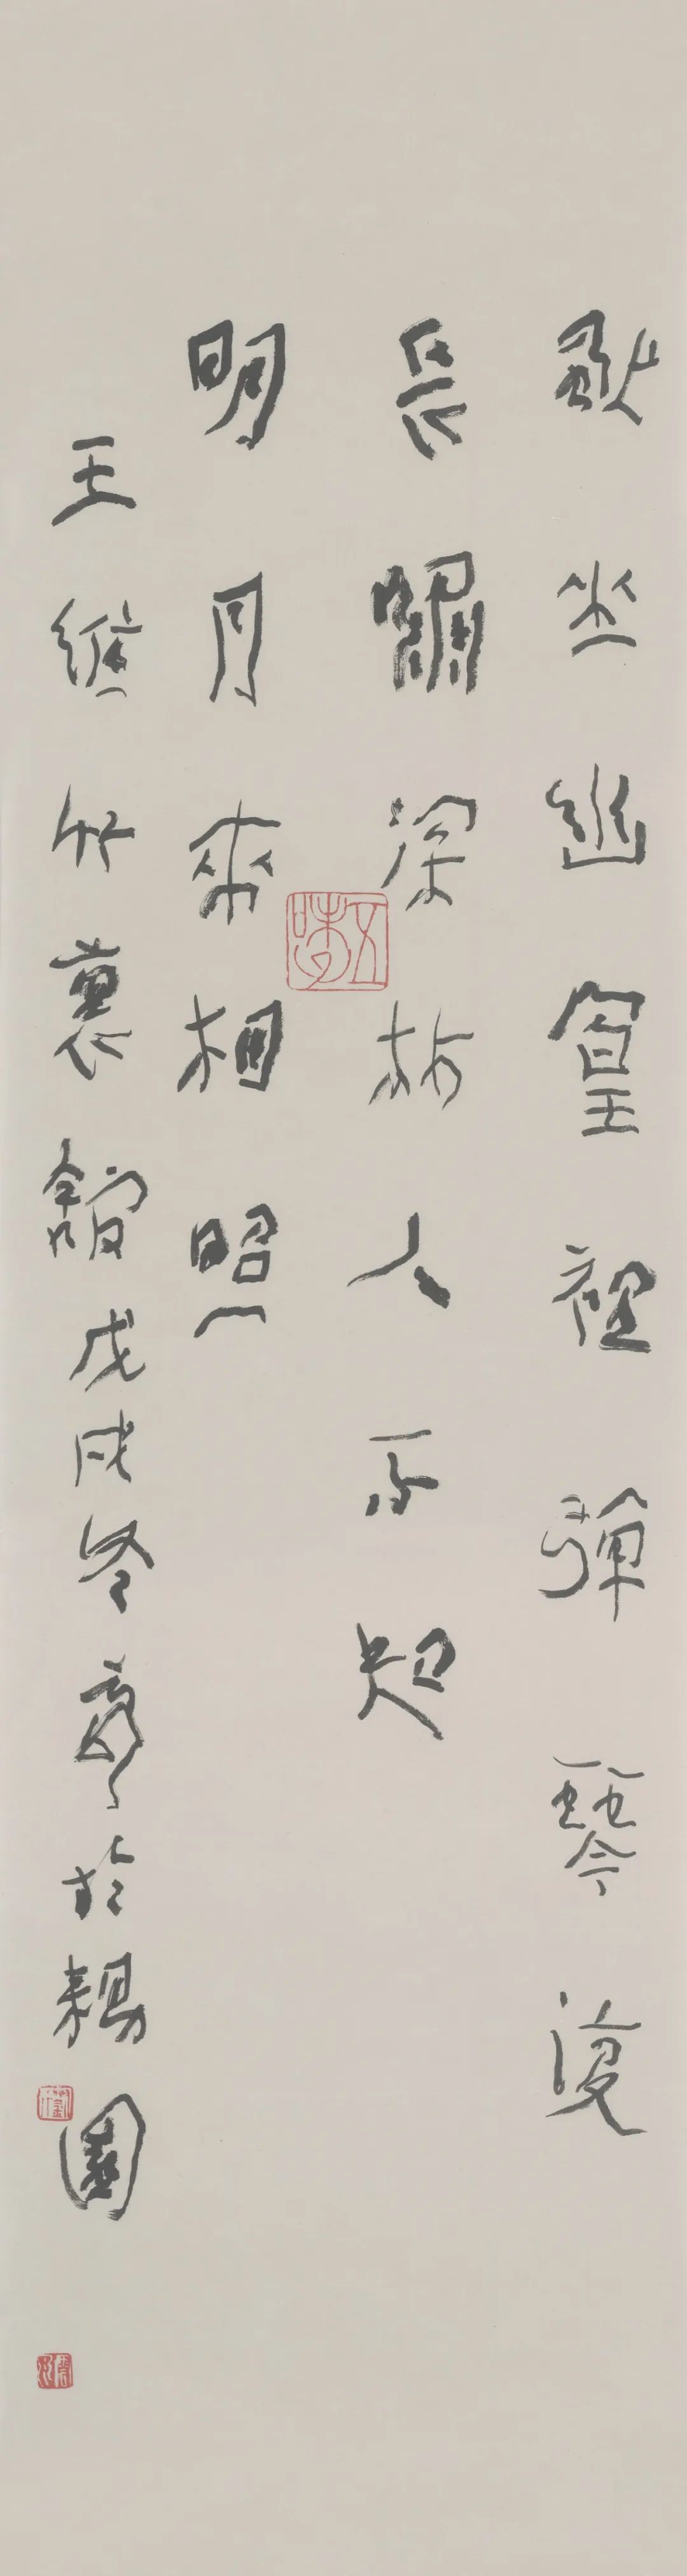 獨坐幽篁裡彈琴復
長嘯深林人不知
明月來相照
王維竹裏館戊戌冬於耦園